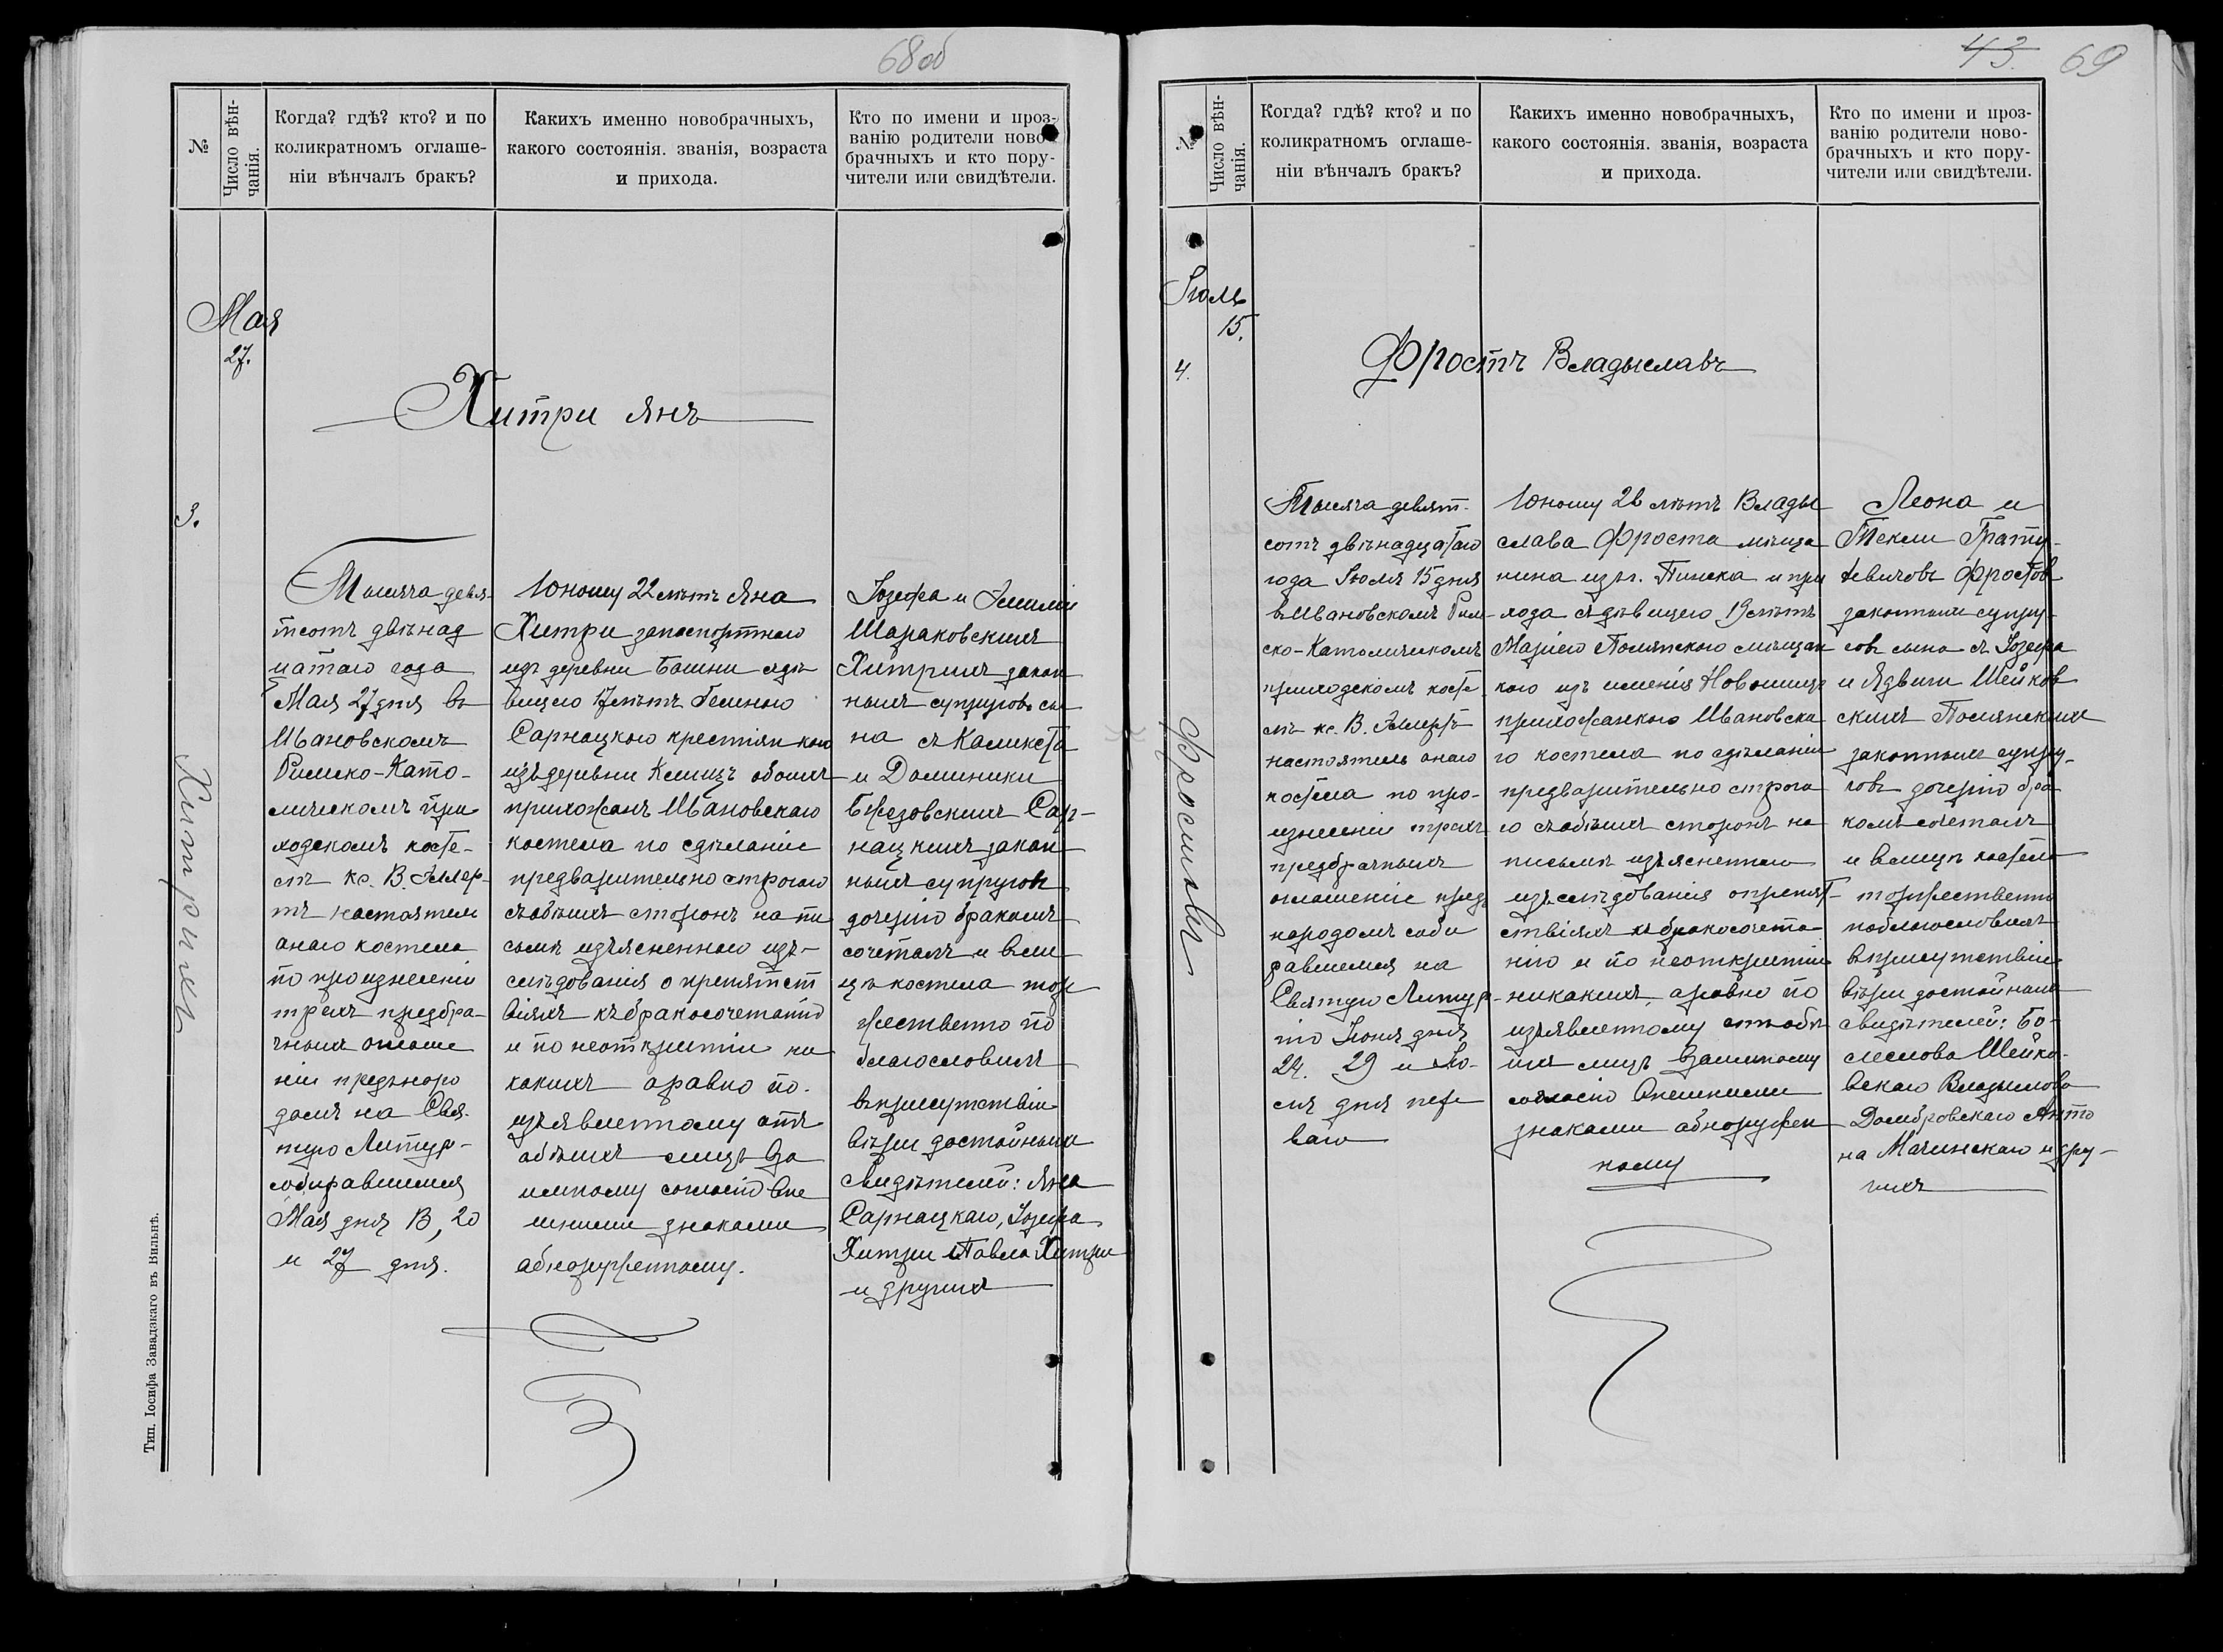 68об
№
Число вѣн-
чанія.
Когда? гдѣ? кто? и по
коликратномъ оглаше-
ніи вѣнчалъ бракъ?
Какихъ именно новобрачныхъ,
какого состоянія. званія, возраста
и прихода.
Кто по имени и проз-
ванію родители ново-
брачныхъ и кто пору-
чители или свидѣтели.
Мая
27.
Хитри Янъ
3.
Тысяча девя-
тсотъ двѣнад
цатаго года
Мая 27 дня въ
Ивановскомъ
Римско-Като-
лическомъ при
ходскомъ косте-
лѣ кс. В. Эллер-
тъ настоятель
онаго костела
по произнесеніи
трехъ предбра-
чныхъ оглаше
ніи предъ наро
домъ на Свя-
тую Литур-
собиравшимся
Мая дня 13, 20
и 27 дня.
Юношу 22 лѣтъ Яна
Хитри запаспортнаго
изъ деревни Башни съ дѣ
вицею 17 лѣтъ Геленою
Сарнацкою крестіян кою
изъ деревни Клещъ обоихъ
прихожанъ Ивановскаго
костела по сдѣланіи
предварительно строгаго
съ обѣихъ сторонъ на пи
сьмѣ изъясненнаго изъ-
слѣдованія о препятст
віяхъ къ бракосочетанію
и по неоткрытіи ни
какихъ аравно по.
изъявленному отъ
обѣихъ лицъ вза
имному согласію вне
шними знаками
обнаруженному.
Іозефа и Эмиліи
Шараковскихъ
Хитрихъ закон
ныхъ супруговъ сы
на съ Каликста
и Доминики
Березовскихъ Сар-
нацкихъ закон
ныхъ супруговъ
дочерію бракомъ
сочеталъ и вли
цѣ костела тор
жественно по
благословилъ
въ присутствіи
вѣры достойныхъ
Свидѣтелей: Яна
Сарнацкаго, Іозефа
Хитри Павла Хитри
и другихъ
Хитрихъ
Тип. Іосифа Завадзкаго въ Вильнѣ.
43. 69
№
Число вѣн-
чанія.
Когда? гдѣ? кто? и по
коликратномъ оглаше-
ніи вѣнчалъ бракъ?
Какихъ именно новобрачныхъ,
какого состоянія. званія, возраста
и прихода.
Кто по имени и проз-
ванію родители ново-
брачныхъ и кто пору-
чители или свидѣтели.
Іюль
15.
4.
Фростъ Владыславъ
Тысяча девят-
сотъ двѣнадцатаго
года Іюля 15 дня
въ Ивановскомъ Рим-
ско-Католическомъ
приходскомъ косте
лѣ кс. В. Эллертъ
настоятель онаго
костела по про-
изнесеніи трехъ
предбрачныхъ
оглашеніе предъ
народомъ соби
равшемся на
Святую Литур-
гію Іюня дня
24. 29 и Ію-
ля дня пер
ваго
Юношу 26 лѣтъ Влады
слава Фроста мѣща
нина изъ г. Пинска и при
хода съ дѣвицею 19 лѣтъ
Маріею Полянскою мѣщан
кою изъ именія
прихожанкою Ивановска
го костела по сдѣланіи
предварительно строга
го съ обѣихъ сторонъ на
письмѣ изъясненнаго
изъслѣдованія о препят-
ствіяхъ къ бракосочета
нію и по неоткрытіи
никакихъ аравно по
изъявленному отъ обѣ
ихъ лицъ взаимному
согласію внешними
знаками обнаружен
ному
Леона и
Текли
Фростовъ
законныхъ супру-
говъ сына съ Іозефа
и Ядвиги Шейков
скихъ Полянскихъ
законныхъ супру-
говъ дочерію бра
комъ сочеталъ
и влицѣ костела
торжественно
поблагословилъ
въ присутствіи
вѣры достойныхъ
свидѣтелей: Бо-
леслова Шейко-
вскаго Владыслова
Домбровскаго Анто
на Мачинскаго и дру-
гихъ
Фростовъ